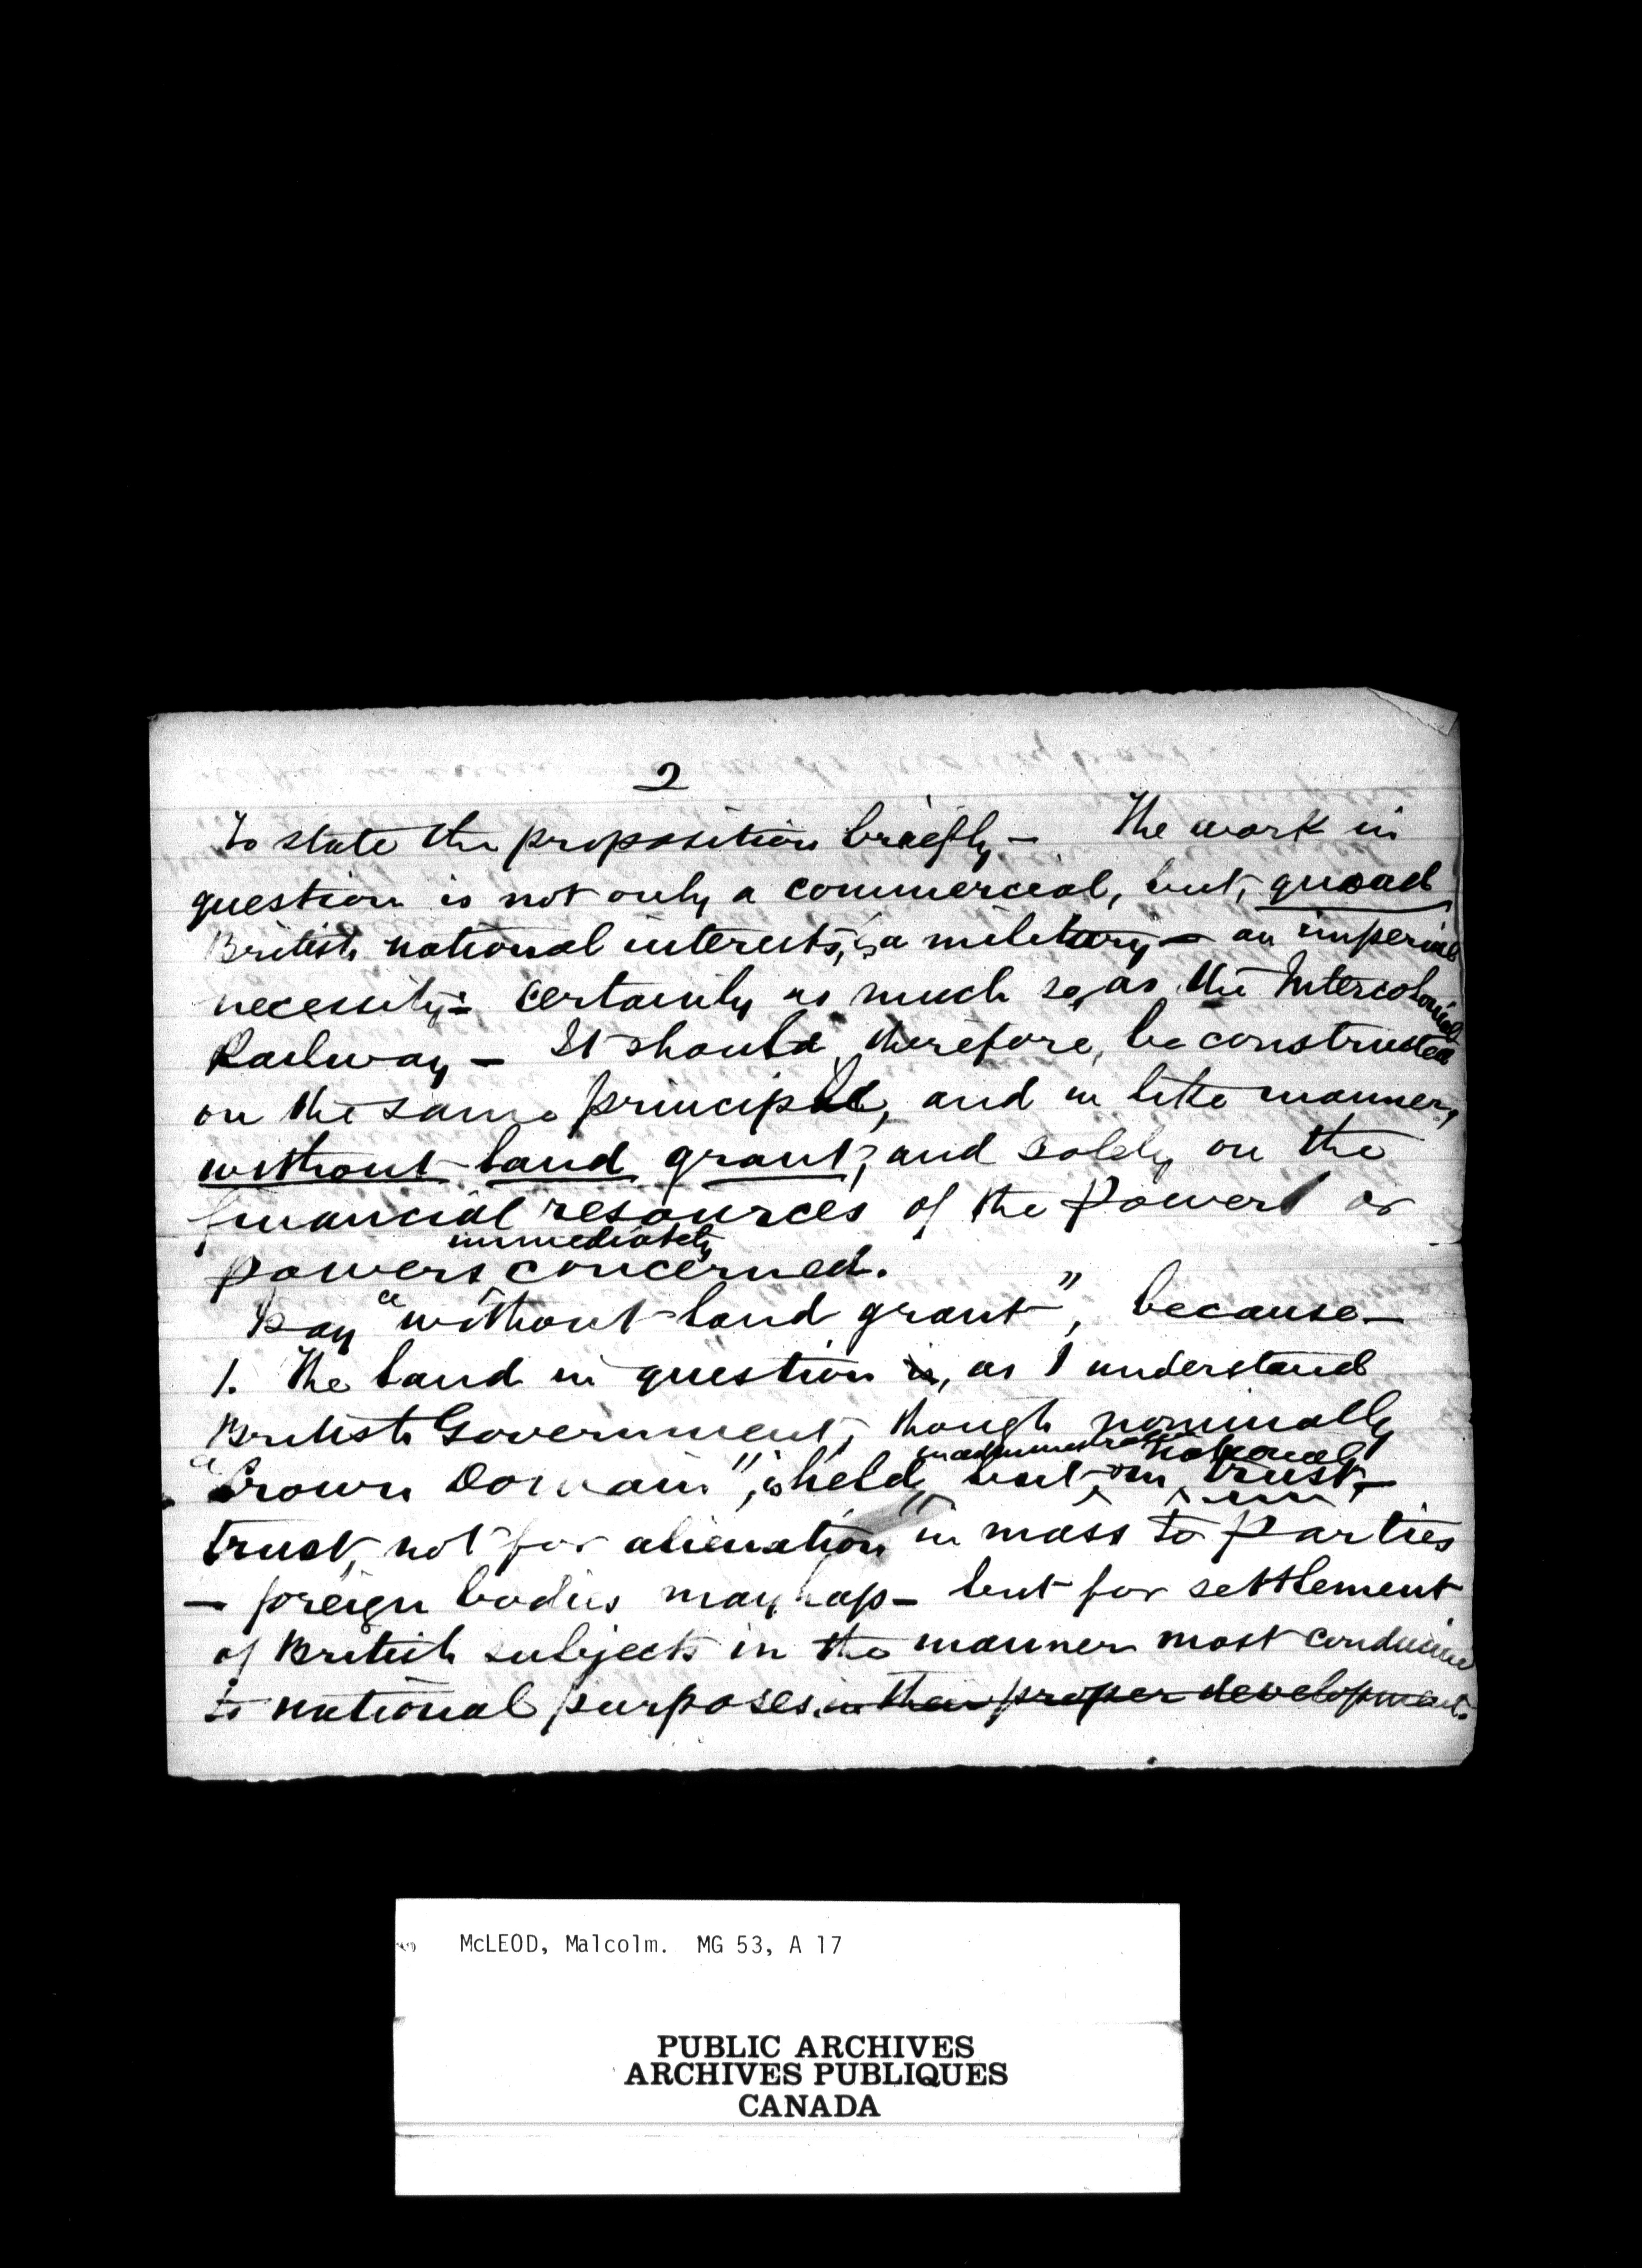 2
To state the proposition briefly – The work in
question is not only a commercial, but, quoad
British national interests, is a military – an imperial
necessity – certainly as much so, as the Intercolonial
Railway – It should, therefore, be constructed
on the same principle, and in like manner,
without land grant, and solely on the
financial resources of the Power or
immediately
powers concerned.
I say "without land grant", because –
1. The land in question is, as I understand
British Government, though nominally
in administration national
"Crown Domain", is held, but in trust –
trust, not for alienation in mass to parties
– foreign bodies mayhap – but for settlement
of British subjects in the manner most conducive
to national purposes. in their proper development.
McLEOD, Malcolm. MG 53, A 17
PUBLIC ARCHIVES
ARCHIVES PUBLIQUES
CANADA